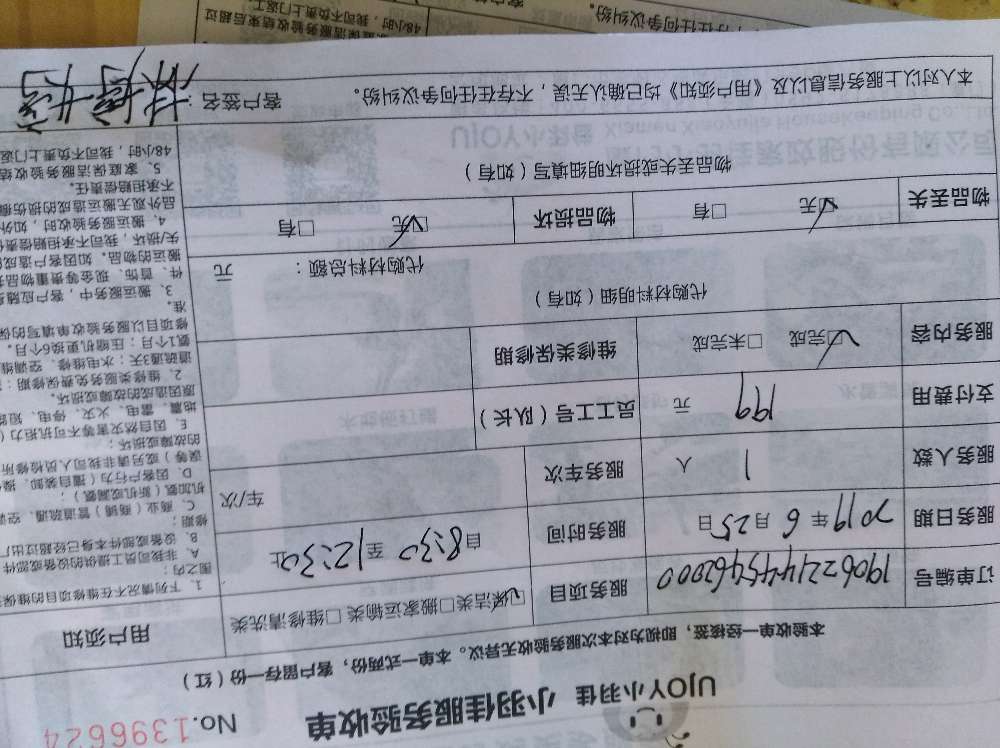 UJOY小羽佳 小羽佳服务验收单 No.1396624
本验收单一经核签，即视为对本次服务验收无异议。本单一式两份，客户留存一份（红）
订单编号 服务项目 ☑保洁类☐搬家运输类☐维修清洗类 用户须知
服务日期 2019年6月25日 服务时间 自8:30至12:30止
服务人数 1人 服务车次 车/次
支付费用 199元 员工工号（队长）
服务内容 ☑完成 ☐未完成 维修类保修期
代购材料明细（如有）
代购材料总额： 元
物品丢失 ☑无 ☐有 物品损坏 ☑无 ☐有
物品丢失或损坏明细填写（如有）
本人对以上服务信息以及《用户须知》均已确认无误，不存在任何争议纠纷。 客户签名：
1、下列情况不在维修项目的维保
围之内：
A、非我司员工提供的设备或部件
B、设备或部件本身已经超过出厂
修期；
C、商业（商铺）管道疏通、空
机加氨（新机或漏氨）；
D、因客户行为（擅自装卸、操
误等）或另请非我司人员检修所
的故障或损坏；
E、因自然灾害等不可抗拒力（
地震、雷电、火灾、停电、短
原因造成的故障或损坏。
2、维修类服务免费保修期：
道疏通3天；水电维修、空调维
氨1个月；压缩机更换6个月。
修项目以服务验收单填写的保
准。
3、搬运服务中，客户应随身
件、首饰、现金等贵重物品
搬运的物品，如因客户造成的
失/损坏，我司不承担赔偿责
4、搬运服务验收时，如外
品外观无搬运造成的损伤痕
不承担赔偿责任。
5、家庭保洁服务验收结
48小时，我司不负责上门返